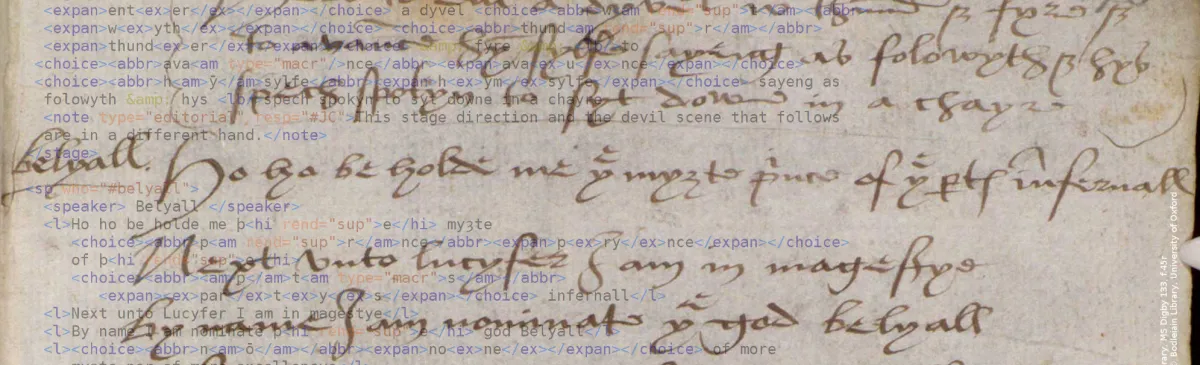 <expan>ent<ex>er</ex></expan></choice> a dyvel <choice><abbr>w<am rend="sup">
<expan>w<ex>yth</ex></expan></choice> <choice><abbr>thund<am rend="sup">r</am></abbr>
<expan>thund<ex>er</ex></expan></choice> &amp; fyre
<choice><abbr>ava<am type="macr"/>nce</abbr><expan>ava<ex>u</ex>nce</expan></choice>
<choice><abbr>h<am>ȳ</am>sylfe</abbr><expan>h<ex>ym</ex>sylfe</expan></choice> sayeng as
folowyth &amp; hys <lb/>spech spokyn to syt downe in a chayre
<note type="editorial" resp="#JC">This stage direction and the devil scene that follows
are in a different hand.</note>
<stage>
<sp who="#belyall">
<speaker> Belyall </speaker>
<l>Ho ho be holde me þ<hi rend="sup">e</hi> myȝte
<choice><abbr>p<am rend="sup">r</am>nce</abbr><expan>p<ex>ry</ex>nce</expan></choice>
of þ<hi rend="sup">e</hi>
<choice><abbr>p<am>t<am type="macr">s</am></abbr>
<expan>par</ex>t<ex>y</ex>s</expan></choice> infernall</l>
<l>Next unto Lucyfer I am in magestye</l>
<l>By name I am nominate þ<hi rend="sup">e</hi> god Belyall</l>
<l><choice><abbr>n<am>ō</am></abbr><expan>no<ex>ne</ex></expan></choice> of more
sayeng as folowyth & hys
spech spokyn to syt downe in a chayre
belyall. Ho ho be holde me þe myȝte prince of þe ptſ infernall
Next vnto lucyfer I am in mageſtye
By name I am nominate þe god belyall
MS Digby 133, f.45r
Bodleian Library, University of Oxford